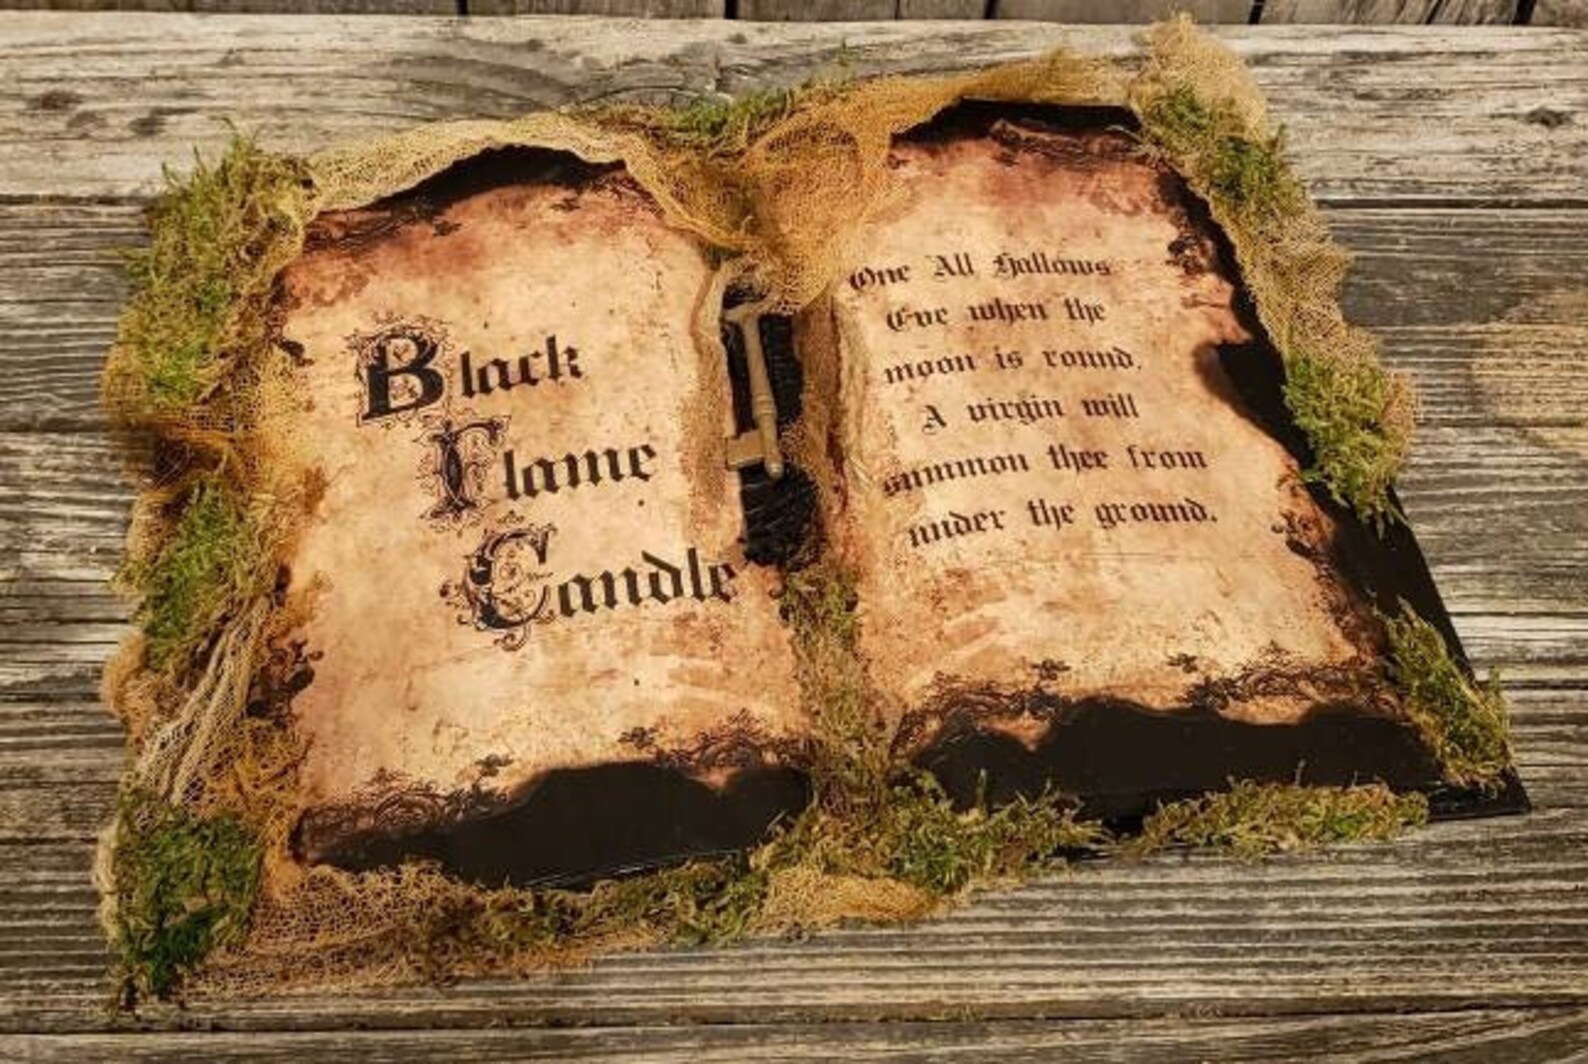 Black
Flame
Candle
One All Hallows
Eve when the
moon is round.
A virgin will
summon thee from
under the ground.